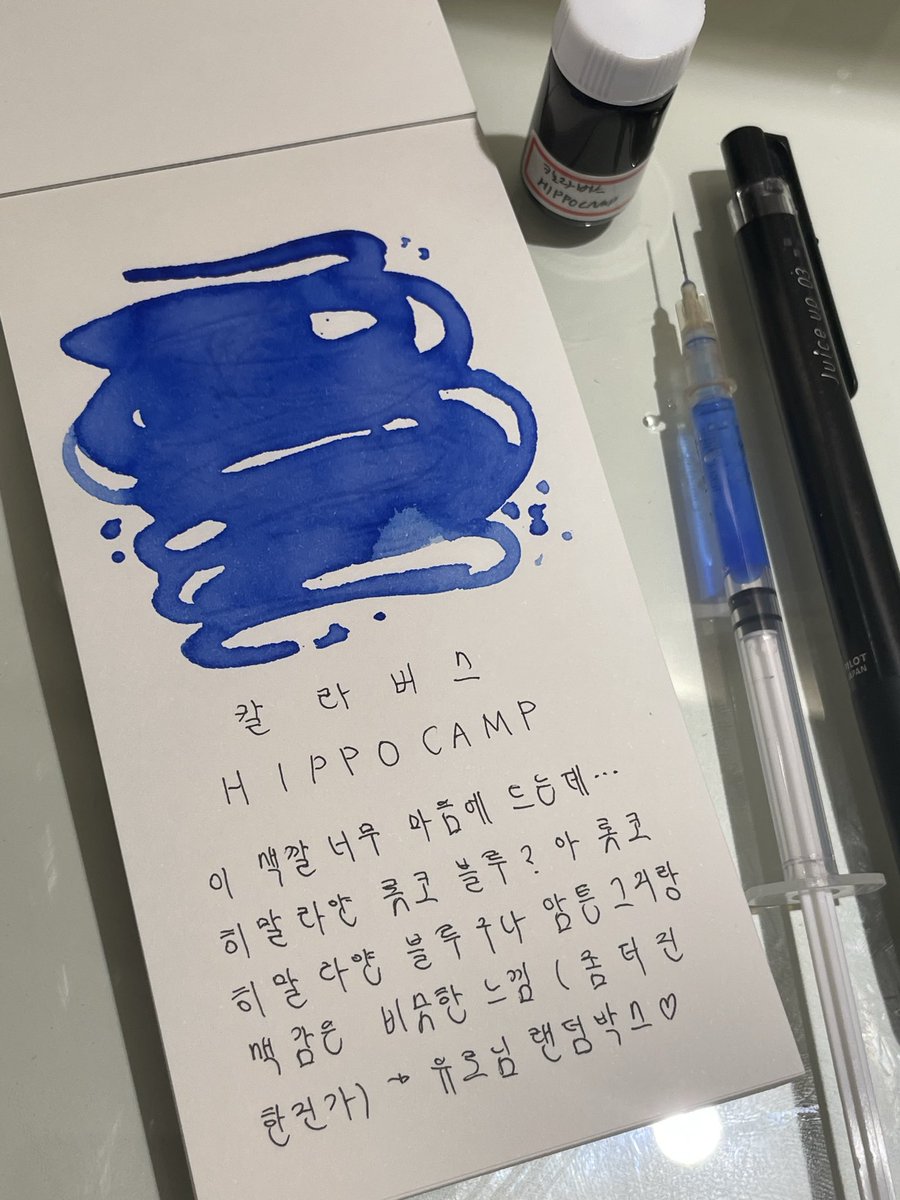 칼라버스
HIPPOCAMP
Juice up 03
PILOT
JAPAN
칼 라 버 스
HIPPO CAMP
이 색깔 너무 마음에 드는데...
히말라얀 롯코 블루? 아 롯코
히말라얀 블루구나 암튼 그거랑
색감은 비뭇한 느낌 (좀 더 진
한건가) → 유로님 랜덤박스♡